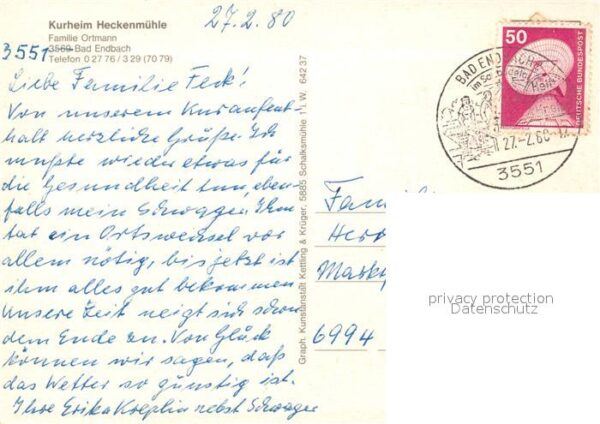 27.2.80
Kurheim Heckenmühle
Familie Ortmann
3551 3569 Bad Endbach
Telefon 0 27 76 / 3 29 (70 79)
Liebe Familie Feck!
Von unserem Kuraufent-
halt herzliche Grüße. Ich
mußte wieder etwas für
die Gesundheit tun, eben-
falls mein Schwager. Ihm
tat ein Ortswechsel vor
allem nötig, bis jetzt ist
ihm alles gut bekommen
Unsere Zeit neigt sich schon
dem Ende zu. Von Glück
können wir sagen, daß
das Wetter so günstig ist.
Ihre Erika Kreplin nebst Schwager
Graph. Kunstanstalt Kettling & Krüger, 5885 Schalksmühle 1 i. W. 642 37
50
DEUTSCHE BUNDESPOST
BAD ENDBACH
27.-2.80
3551
Fam
Herr
Markt
6994
privacy protection
Datenschutz